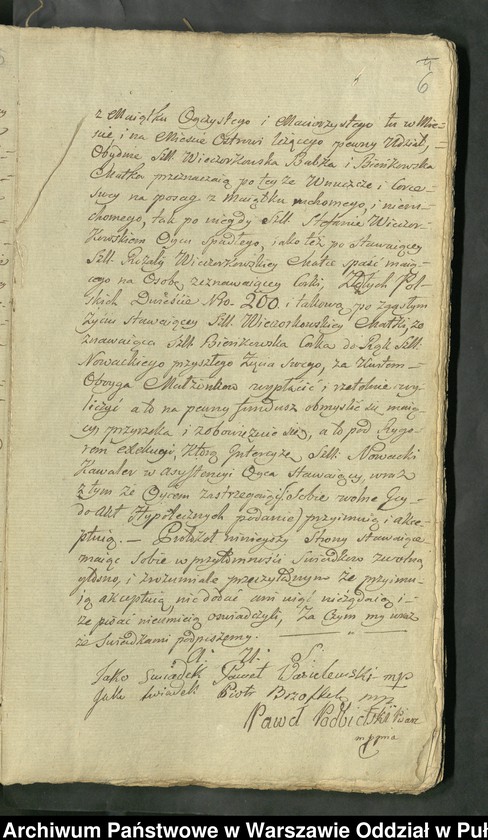 6
z Maiątku Oyczystego i Macierzystego tu w Mie-
ście, i na Mieście Ostrowi leżącego pewny Udział,
Obydwie, Szl. Wieczorkowska Babka i Bienkowska
Matka przeznaczaią po teyże Wnuczce i Corce
swey na posag z Maiątku ruchomego, i nieru-
chomego, tak po niegdy Szl. Stefanie Wieczor-
kowskiem Oycu spadłego, iako też po stawaiącey
Szl. Rozalij Wieczorkowskiey Matce spaść maią-
cego na Osobę zeznawaiącey Corki, Złotych Pol-
skich Dwieście Nro. 200. i takową po zaszłym
życiu stawaiącey Szl. Wieczorkowskiey Matki, ze
znawaiąca Szl. Bienkowska Corka do Rąk Szl.
Nowackiego przyszłego Zięcia swego, za Kwitem
Oboyga Małżonkow wypłacić i rzetelnie wy-
liczyć a to na pewny fundusz obmyślić się maią-
cy przyrzeka i zobowięzuie się, a to pod Rygo-
rem exekucyi, Którą Intercyzę Szl. Nowacki
Kawaler w Assystencyi Oyca stawaiący, wraz
z tym że Oycem zastrzegaiąc sobie wolne Jey
do Akt Hypotecznych podanie) przyimuią i akce-
ptuią. — Protokoł ninieyszy Strony stawaiące
maiąc sobie w przytomności Swiadkow zwolna
głośno, i zrozumiale przeczytanym że przyimu-
ią akceptuią, nic dodać ani uiąć nieżądaią i
że pisać nieumieią oświadczyli, Za Czym my wraz
ze świadkami podpisujemy.
Jako Swiadek Paweł mp
Jako świadek Piotr mp
Paweł Pisarz